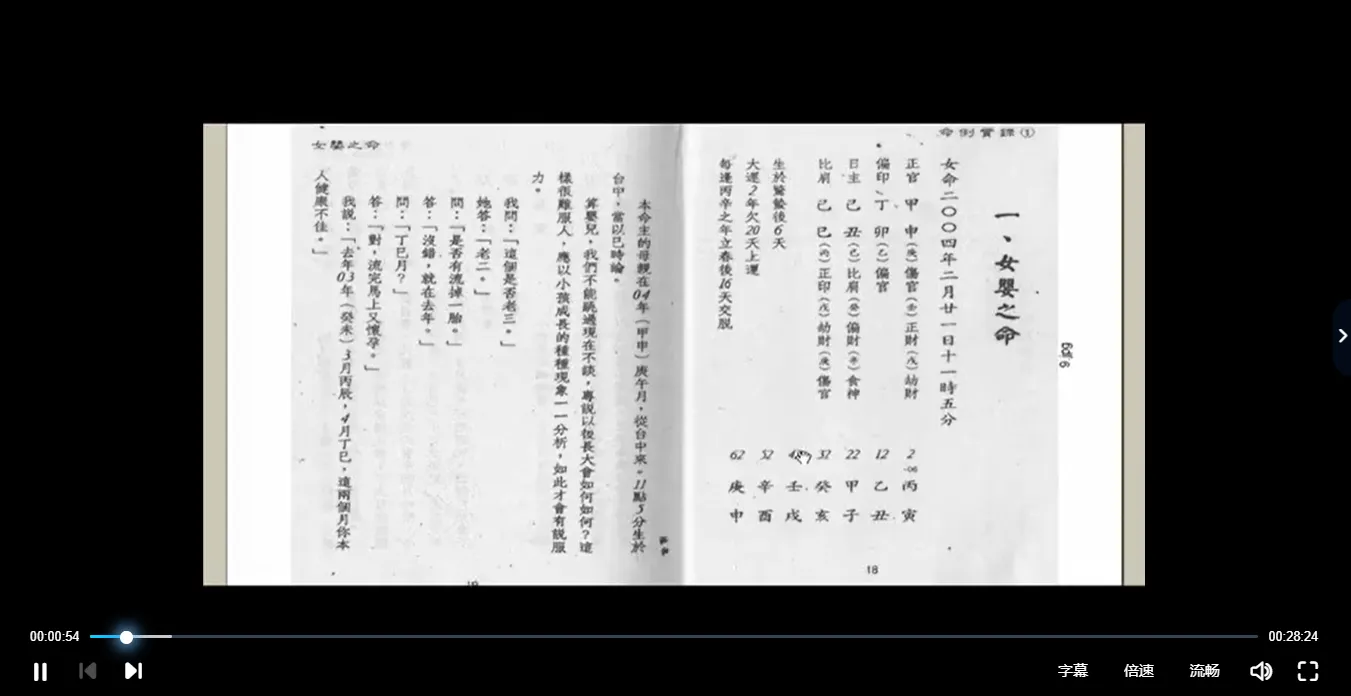 命例實錄①
一、女嬰之命
女命二〇〇四年二月廿一日十一時五分
正官 甲 申(庚)傷官(壬)正財(戊)劫財
偏印 丁 卯(乙)偏官
日主 己 丑(己)比肩(癸)偏財(辛)食神
比肩 己 巳(丙)正印(戊)劫財(庚)傷官
生於驚蟄後6天
大運2年欠20天上運
每逢丙辛之年立春後16天交脫
2 丙寅
12 乙丑
22 甲子
32 癸亥
壬戌
52 辛酉
62 庚申
18
女嬰之命
本命主的母親在04年(甲申)庚午月,從台中來。11點5分生於
台中,當以巳時論。
算嬰兒,我們不能跳過現在不談,專說以後長大會如何如何?這
樣很難服人,應以小孩成長的種種現象一一分析,如此才會有說服
力。
我問:「這個是否老三。」
她答:「老二。」
問:「是否有流掉一胎。」
答:「沒錯,就在去年。」
問:「丁巳月?」
答:「對,流完馬上又懷孕。」
我說:「去年03年(癸未)3月丙辰,4月丁巳,這兩個月你本
人健康不佳。」
00:00:54
00:28:24
字幕
倍速
流畅